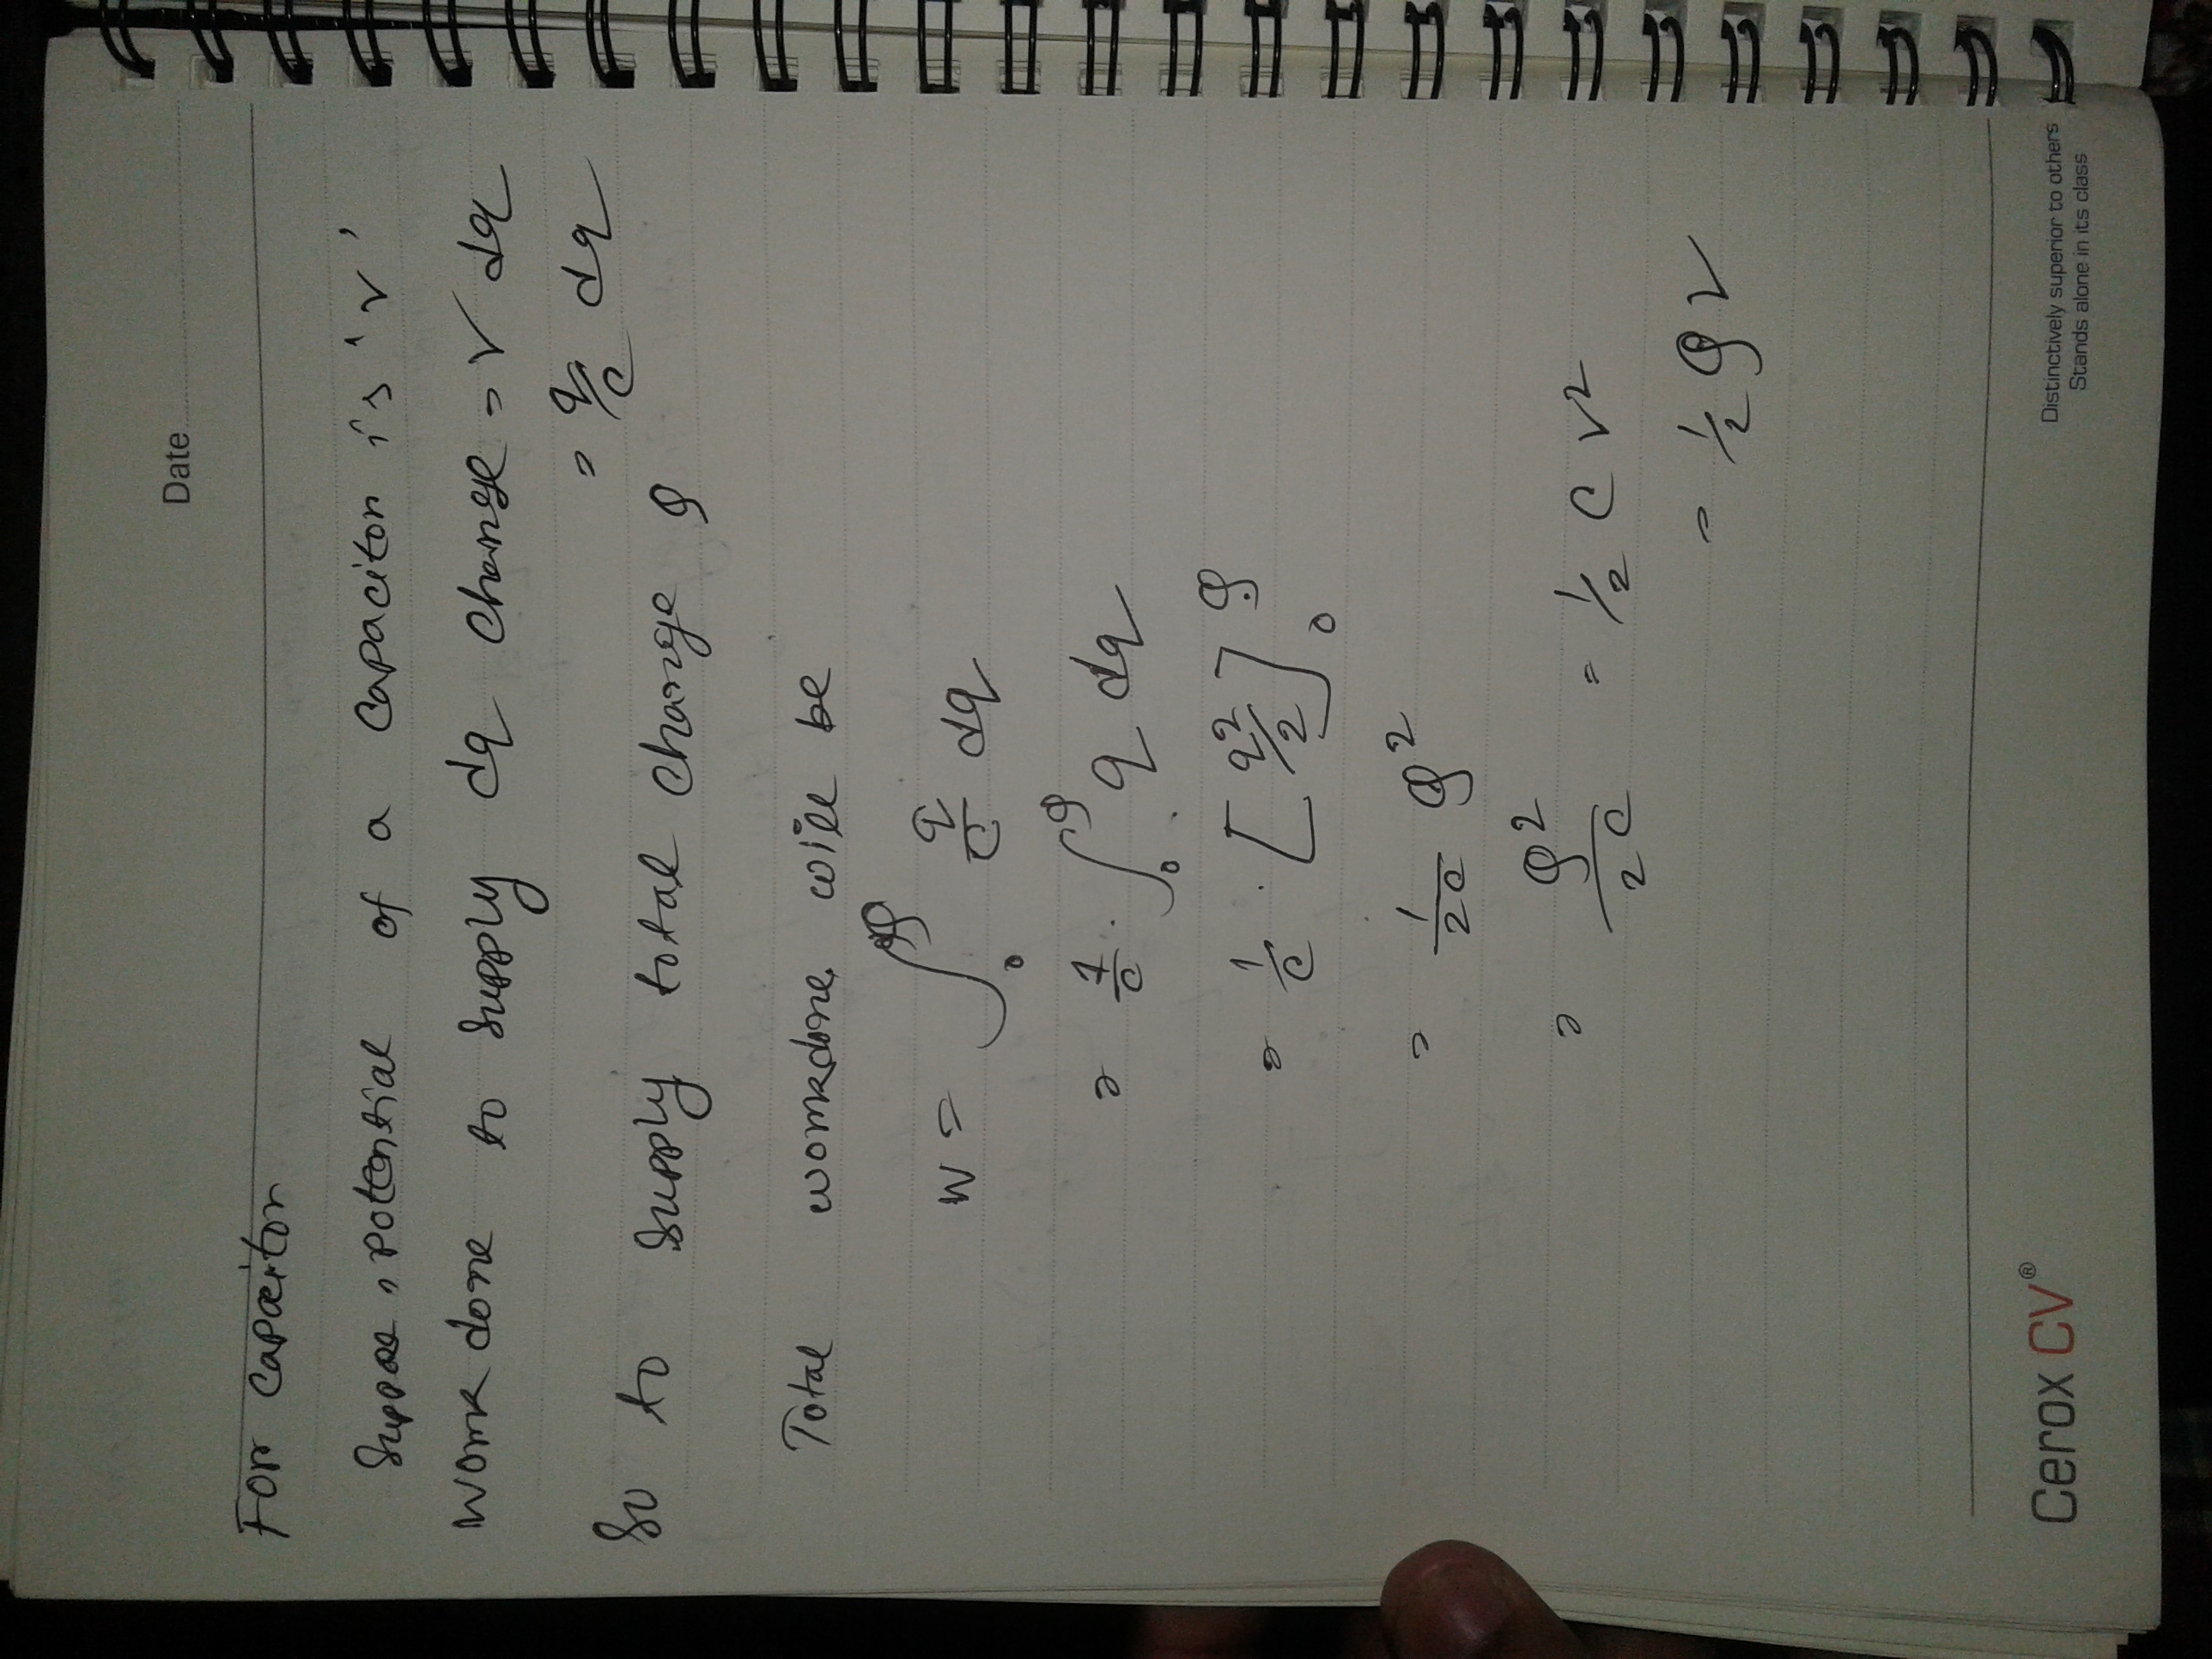 Date
For capacitor
Suppose, potential of a capacitor is 'V'
Work done to supply dq charge = V dq
= q/c dq
So to supply total charge Q
Total workdone will be
W = ∫₀^Q q/c dq
= 1/c · ∫₀^Q q dq
= 1/c · [q²/2]₀^Q
= 1/2c Q²
= Q²/2c = 1/2 C V²
= 1/2 Q V
Cerox CV®
Distinctively superior to others
Stands alone in its class